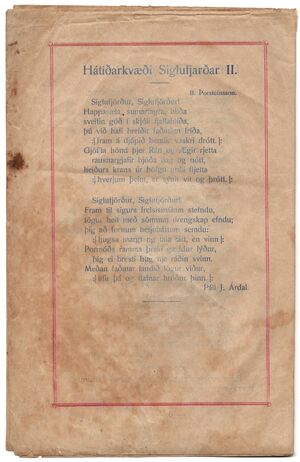 Hátíðarkvæði Siglufjarðar II.
B. Þorsteinsson.
Siglufjörður, Siglufjörður!
Happasæla, sumarfagra, blíða
sveitin góð í skjóli fjallahlíða,
þú við hafi breiðir faðminn fríða,
:,: fram á djúpið bendir vaskri drótt. :,:
Gjöfla hönd þjer Rán og Ægir rjetta
rausnargjafir bjóða dag og nótt,
heiðurs krans úr höfgu gulli fljetta
:,: hverjum þeim, er sýnir vit og þrótt. :,:
Siglufjörður, Siglufjörður!
Fram til sigurs frelsisbraut stefndu,
heit með sönnum drengskap efndu;
þig að fornum
:,: hugsa margt og tala fátt, en vinn :,:
Þormóðs ramma þrek lýður,
þig ei bresti hug nje ráðin svinn.
Meðan faðmar landið lögur víður,
:,: þú og hróður þinn. :,:
Páll J. Árdal